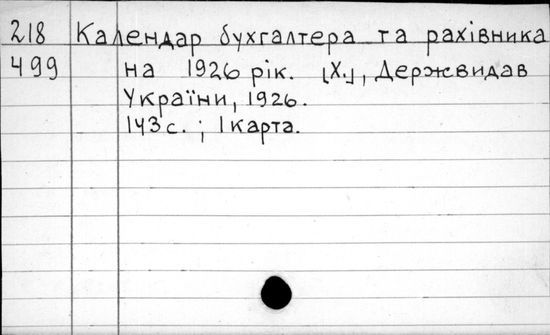 218 Календар бухгалтера та рахівника
499 на 1926 рік. [Х.], Держвидав
України, 1926.
143 с. ; 1 карта.